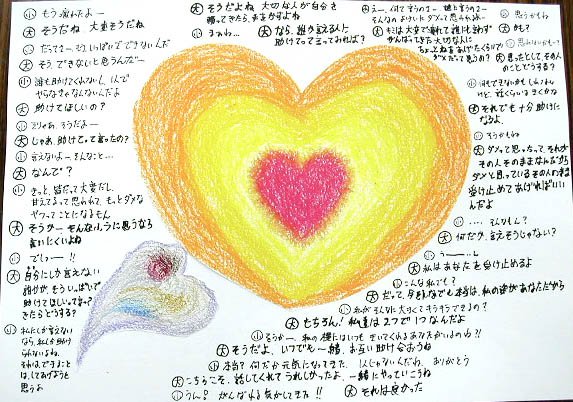 小 もう 疲れたよー
大 そうだね 大変そうだね
小 だってさー、もういっぱいでできないんだ
大 そう、できないと思うんだー
小 誰も助けてくれないし、1人で
やらなきゃなんないんだよ
大 助けてほしいの？
小 そりゃあ、そうだよー
大 じゃあ、助けてって言ったの？
小 言えないよー そんなこと…
大 なんで？
小 きっと、皆だって大変だし、
甘えてるって思われて、もっとダメな
やつってことになるもん
大 そうかー そんなふうに思うなら
言いにくいよね
小 でしょー!!
大 自分にしか言えない
誰かが、もういっぱいで
助けてほしいって言って
きたらどうする？
小 私にしか言えない
なら、私しか助け
られないよね、
それは、できることは
、してあげようと
思うよ
大 そうだよ 大切な人が自分を
頼ってきたら、まかすよね
小 まぁね…
大 なら、誰か言える人に
助けてって言ってみれば？
小 えー、
そんなのおしつけ ダメって思われる…
大 キミは大変で疲れて誰にも言わず
がんばってきた大切な人に
ちょっとねをあげたくらいで
ダメだって思うの？
小 思うかもね
大 かも？
小 思わないかも？
大 思ったとして、その人
のことどうする？
小 何もできないかもしれない
けど、話くらいはきくかな
大 それでも十分助けに
なるよ
小 そうかもね
大 ダメって思っちゃって、それが
その人そのままなんだから
ダメと思っているその人のまま
受け止めてあげればいい
んだよ
小 …. そんなもん？
大 何だか、言えそうじゃない？
小 うーー…ん
大 私はあなたを受け止めるよ
小 こんな私でも？
大 だって、今までもでも本当は、私の姿があなただから
小 私がそんなに大きくてキラキラできるの？
大 もちろん！私達は2つで1つなんだよ
小 そうかー、私の横にはいつもきいてくれるあなたがいるのね!!
大 そうだよ、いつでも一緒、お互い助け合おうね
小 本当？何だか元気になってきた、1人じゃないんだね、ありがとう
大 こちらこそ、話してくれてうれしかったよ、一緒にやっていこうね
小 うん？がんばれる気がしてきた!!
大 それは良かった